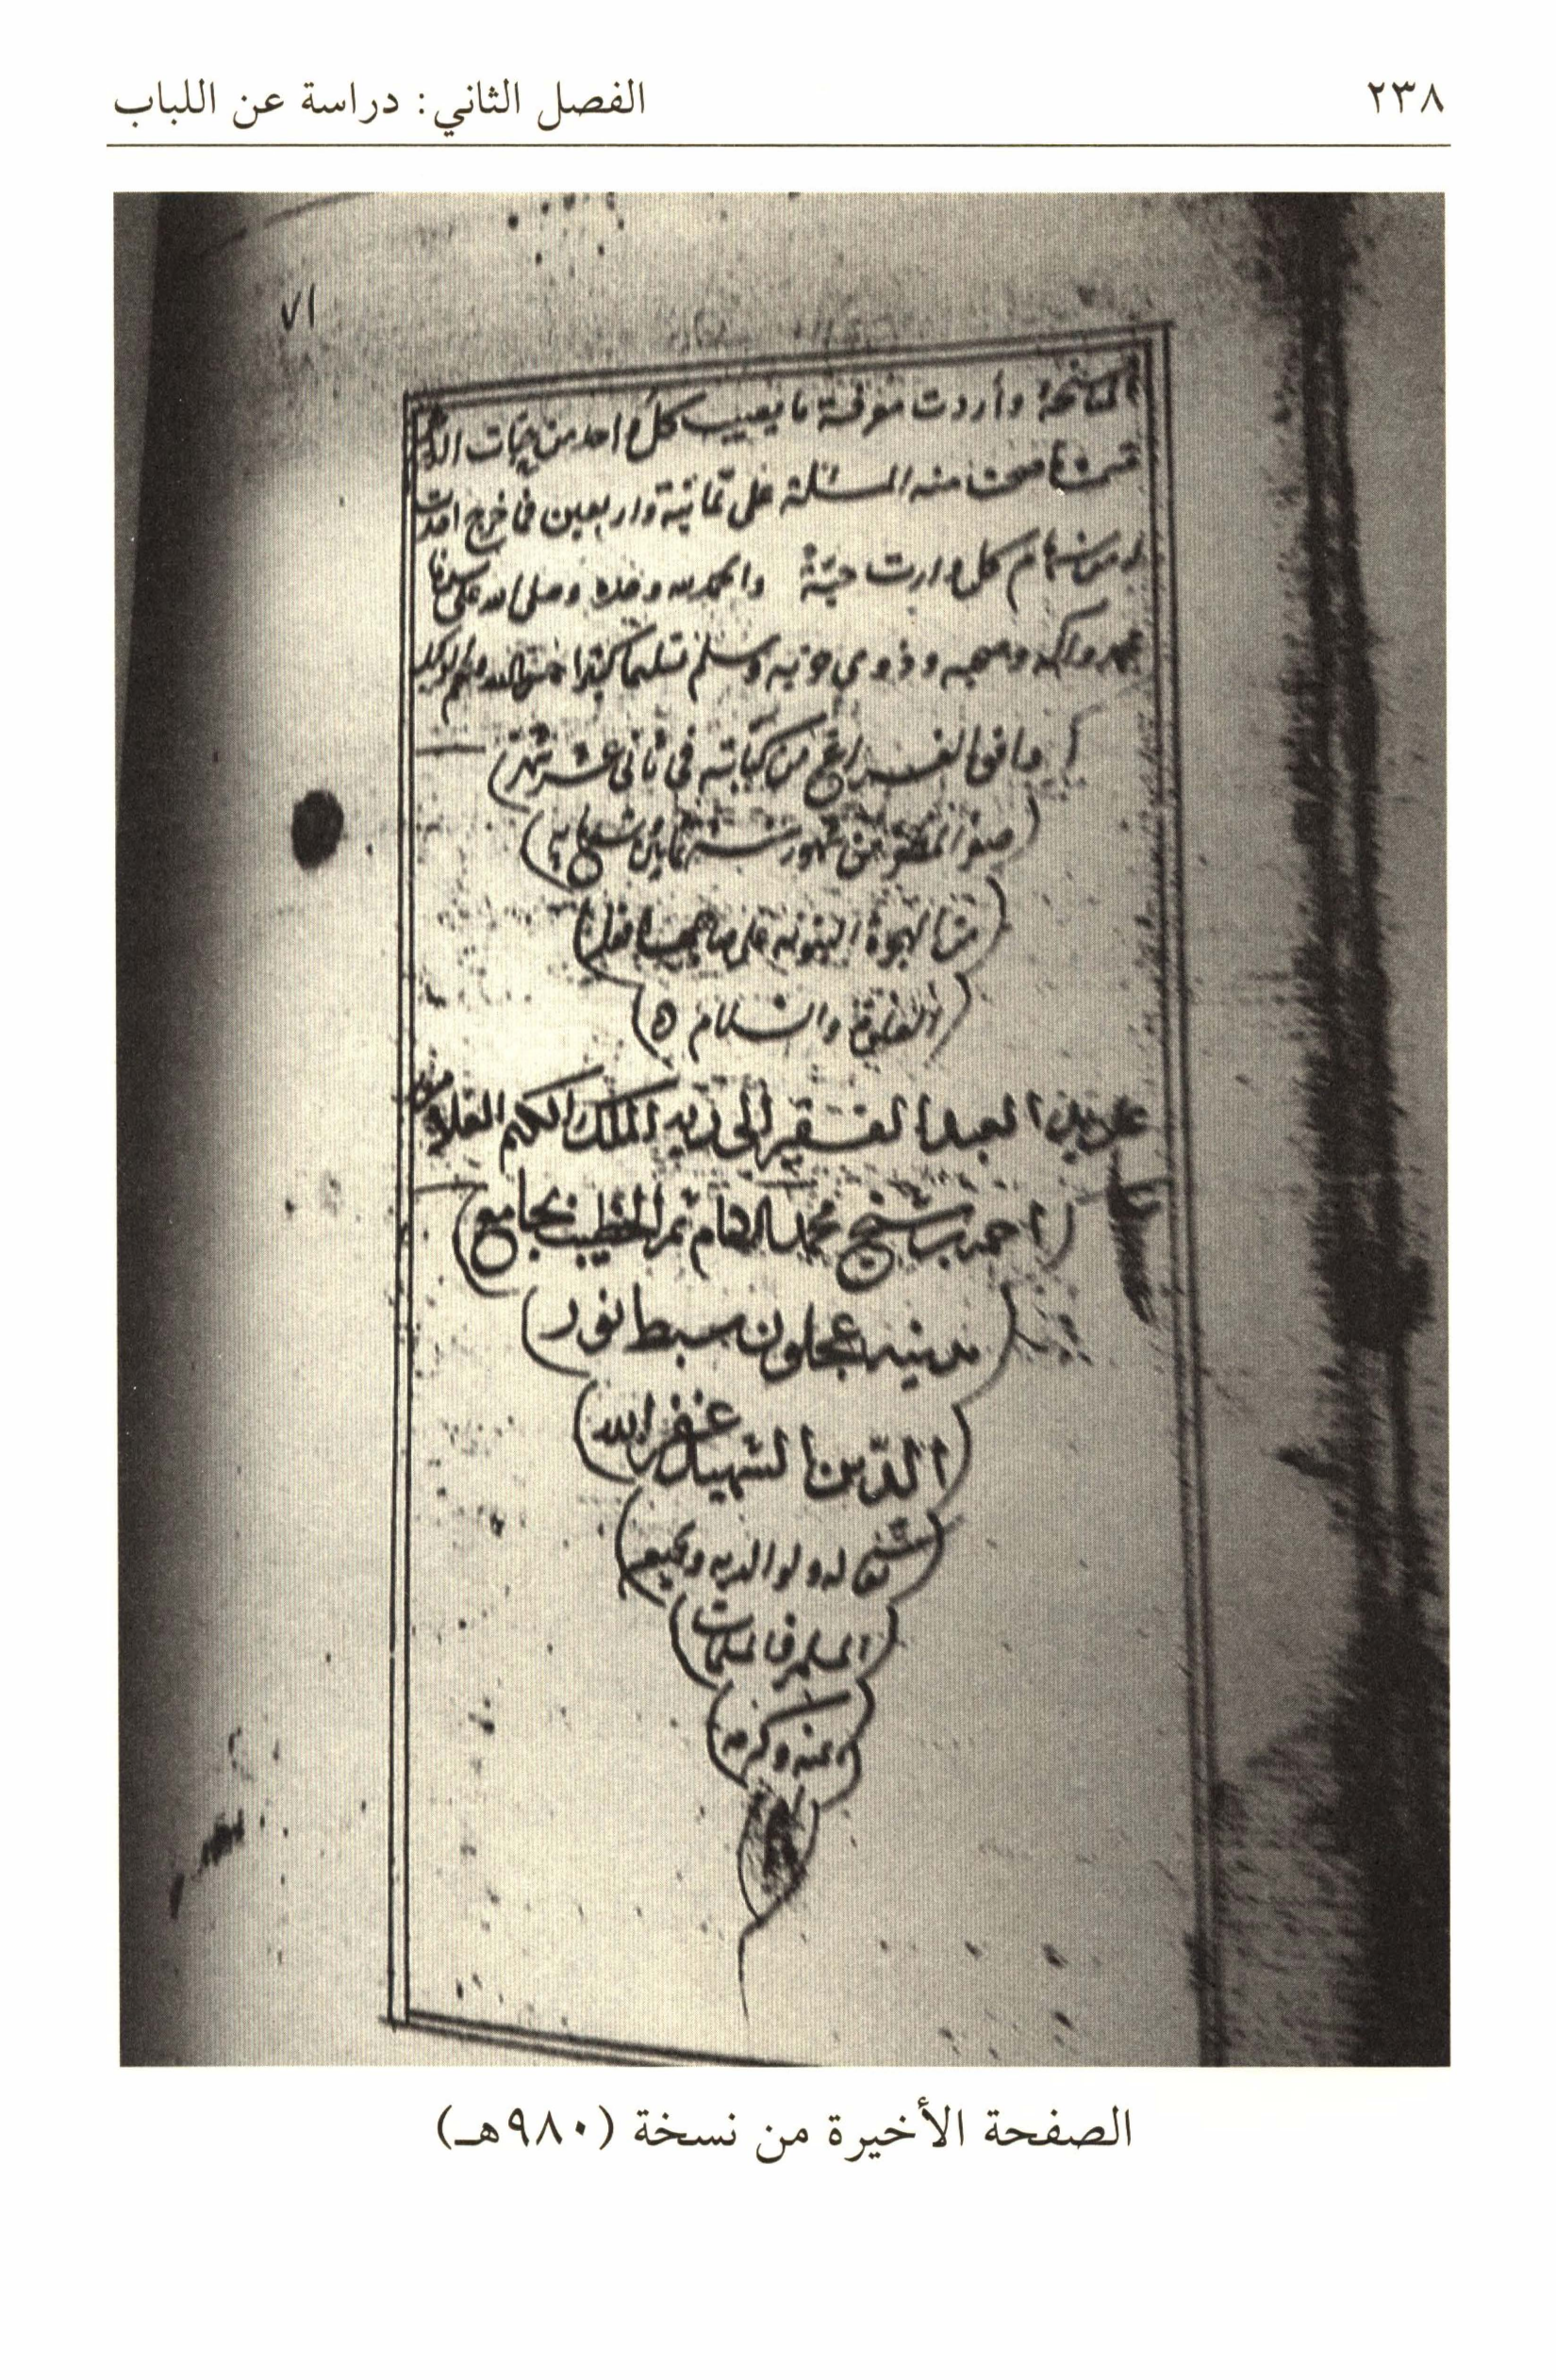 ٢٣٨
الفصل الثاني: دراسة عن اللباب
٧١
المناسخة وأردت معرفة ما يصيب كل واحد من حبات الدرهم
قسمت ما صحت منه المسئلة على ثمانية واربعين فما خرج اخدت
له من سهام كل وارث حبّة والحمد لله وحده وصلى الله على سيدنا
محمد واله وصحبه وذوي حزبه وسلم تسليما كثيرا حسبنا الله ونعم الوكيل
وافق الفراغ من كتابته في ثاني عشر شهر
صفر المظفر من شهور سنة ثمانين وتسعمايه
من الهجرة النبويه على صاحبها افضل
الصلوة والسلام ه
على يد العبد الفقير الى ربه الملك الكريم العلام
احمد بن شيخ محمد الخطيب بجامع
مدينه عجلون سبط نور
الدّين الشهيد غفر الله
تعالى له ولوالديه ولجميع
المسلمين والمسلمات
بمنه وكرمه
الصفحة الأخيرة من نسخة (٩٨٠هـ)